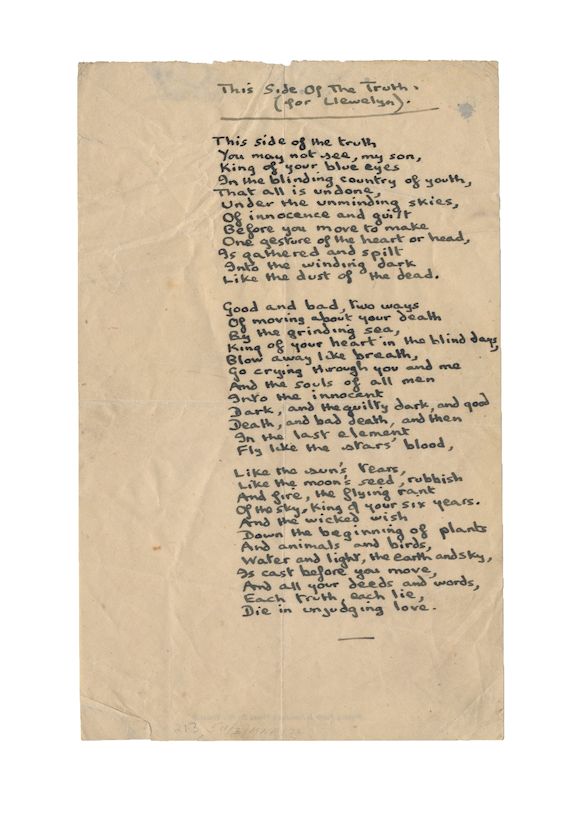 This Side Of The Truth.
(for Llewelyn).
This side of the truth
You may not see, my son,
King of your blue eyes
In the blinding country of youth,
That all is undone,
Under the unminding skies,
Of innocence and guilt
Before you move to make
One gesture of the heart or head,
Is gathered and spilt
Into the winding dark
Like the dust of the dead.
Good and bad, two ways
Of moving about your death
By the grinding sea,
King of your heart in the blind days,
Blow away like breath,
Go crying through you and me
And the souls of all men
Into the innocent
Dark, and the guilty dark, and good
Death, and bad death, and then
In the last element
Fly like the stars' blood,
Like the sun's tears,
Like the moon's seed, rubbish
And fire, the flying rant
Of the sky, king of your six years.
And the wicked wish
Down the beginning of plants
And animals and birds,
Water and light, the earth and sky,
Is cast before you move,
And all your deeds and words,
Each truth, each lie,
Die in unjudging love.